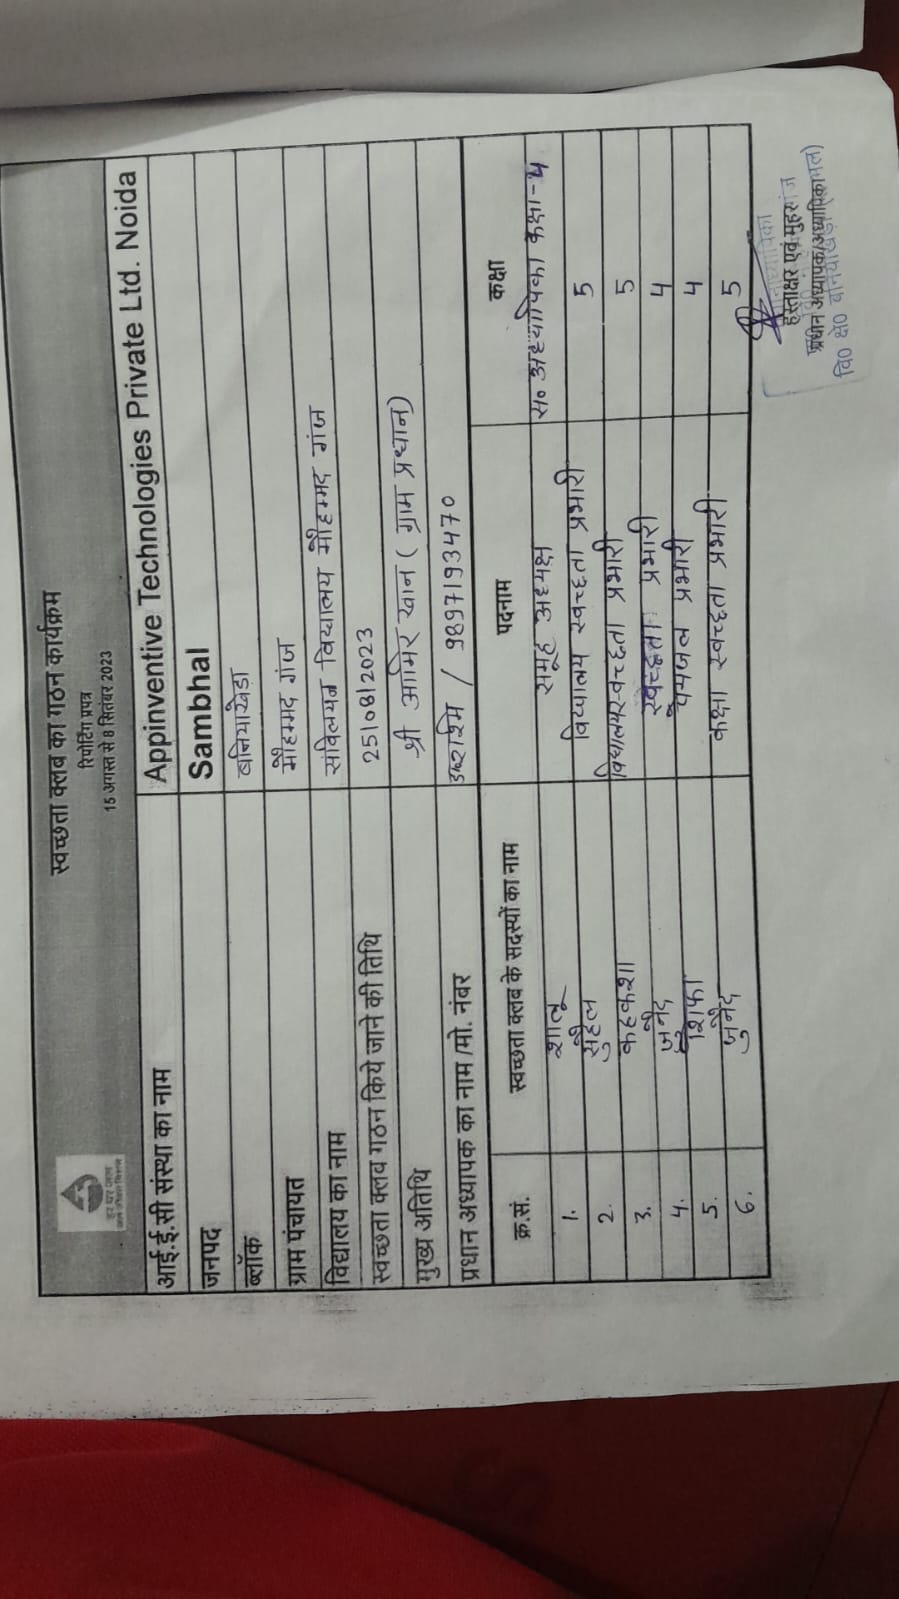 हर घर जल
जल जीवन मिशन
स्वच्छता क्लब का गठन कार्यक्रम
रिपोर्टिंग प्रपत्र
15 अगस्त से 8 सितंबर 2023
आई.ई.सी संस्था का नाम Appinventive Technologies Private Ltd. Noida
जनपद Sambhal
ब्लॉक बनियाखेडा
ग्राम पंचायत मौहम्मद गंज
विद्यालय का नाम संविलयन विद्यालय मौहम्मद गंज
स्वच्छता क्लब गठन किये जाने की तिथि 25/08/2023
मुख्य अतिथि श्री आमिर खान ( ग्राम प्रधान)
प्रधान अध्यापक का नाम /मो. नंबर / 9897193470
क्र.सं. स्वच्छता क्लब के सदस्यों का नाम पदनाम कक्षा
1. शालू समूह अध्यक्ष स० अध्यापिका कक्षा-4
2. सुहैल विद्यालय स्वच्छता प्रभारी 5
3. कहकशा विद्यालय स्वच्छता प्रभारी 5
4. जुनैद स्वच्छता प्रभारी 4
5. शिफा पेयजल प्रभारी 4
6. जुनैद कक्षा स्वच्छता प्रभारी 5
हस्ताक्षर एवं मुहर
प्रधान अध्यापक/अध्यापिका